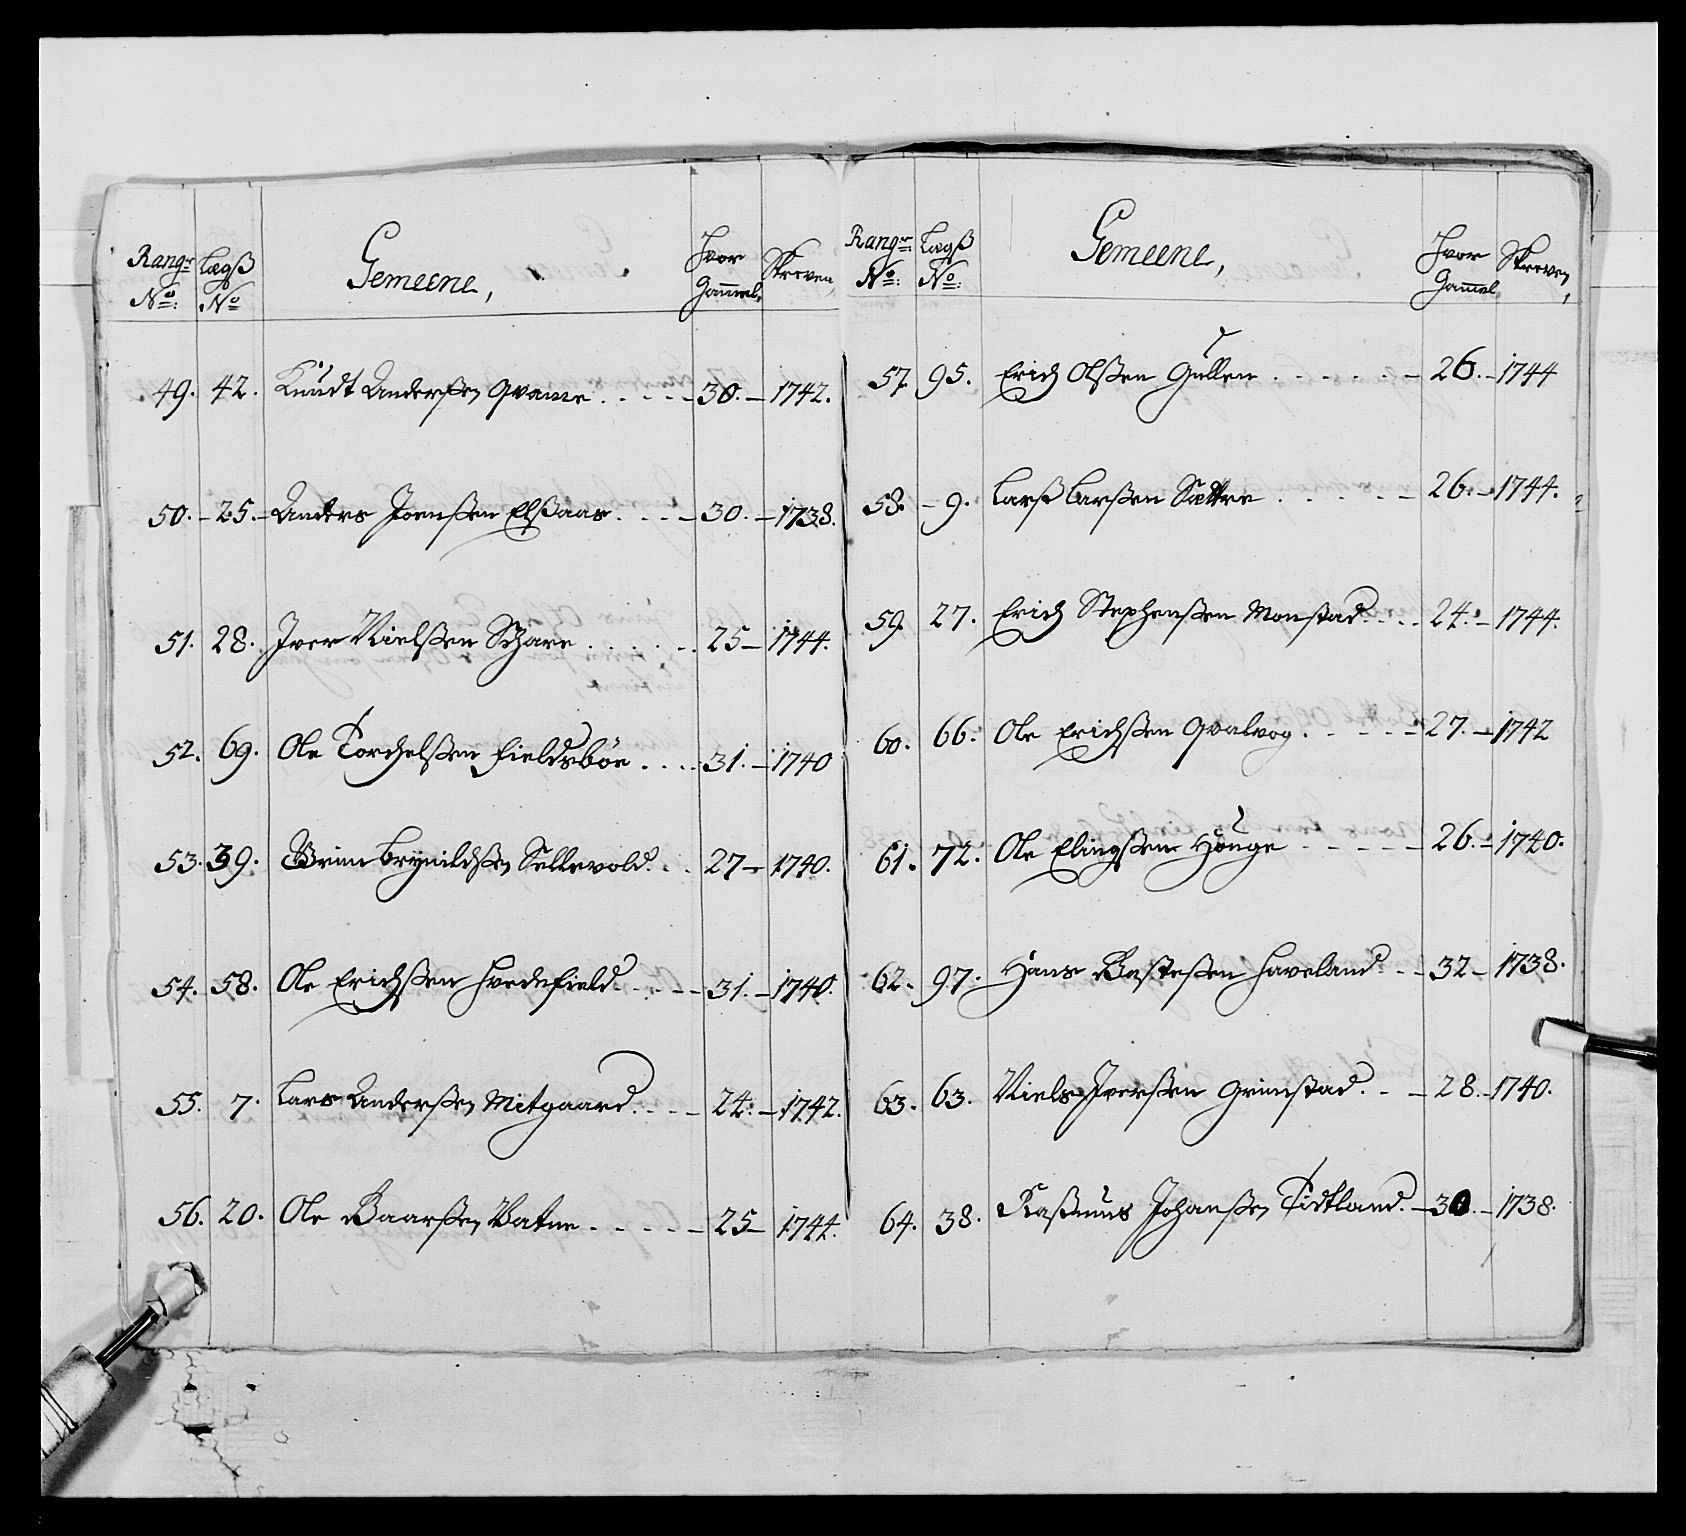 Rangr No: Lægß No Gemeene, Hvor Gam̄el, Skreven,
49. 42. Knudt Anderßen Qvame . . . . . 30. – 1742.
50. – 25. – Anders Joenßen Elßaas . . . . 30. – 1738.
51. 28. Iver Nielßen Schare . . . . . . 25 – 1744.
52. 69. Ole Torchelßen Fieldsbøe . . . . 31. – 1740
53. 39. Brinn Brynildßen Sellevold . . . 27 – 1740.
54. 58. Ole Erichßen Hvedefield . . . . 31. – 1740.
55. 7. Lars Anderßen Mitgaard . . . . 24. – 1742.
56. 20. Ole Baarßen Vatne . . . . . 25 – 1744.
Rangr No: Lægß No: Gemeene, Hvor Gam̄el Skreven,
57. 95. Erich Olßen Gullen . . . . . . 26. – 1744
58. – 9. Larß Larßen Sættre . . . . . 26. – 1744.
59. 27. Erich Stephenßen Monstad . . . . 24. – 1744.
60. 66. Ole Erichßen Qvalvog . . . . . 27. – 1742
61. 72. Ole Elingßen Houge . . . . . 26. – 1740.
62. 97. Hans Basteßen Haveland . . . 32 – 1738.
63. 63. Niels Iverßen Grimstad . . . 28. – 1740.
64. 38. Raßmus Johanßen Tidtland . – 30. – 1738.